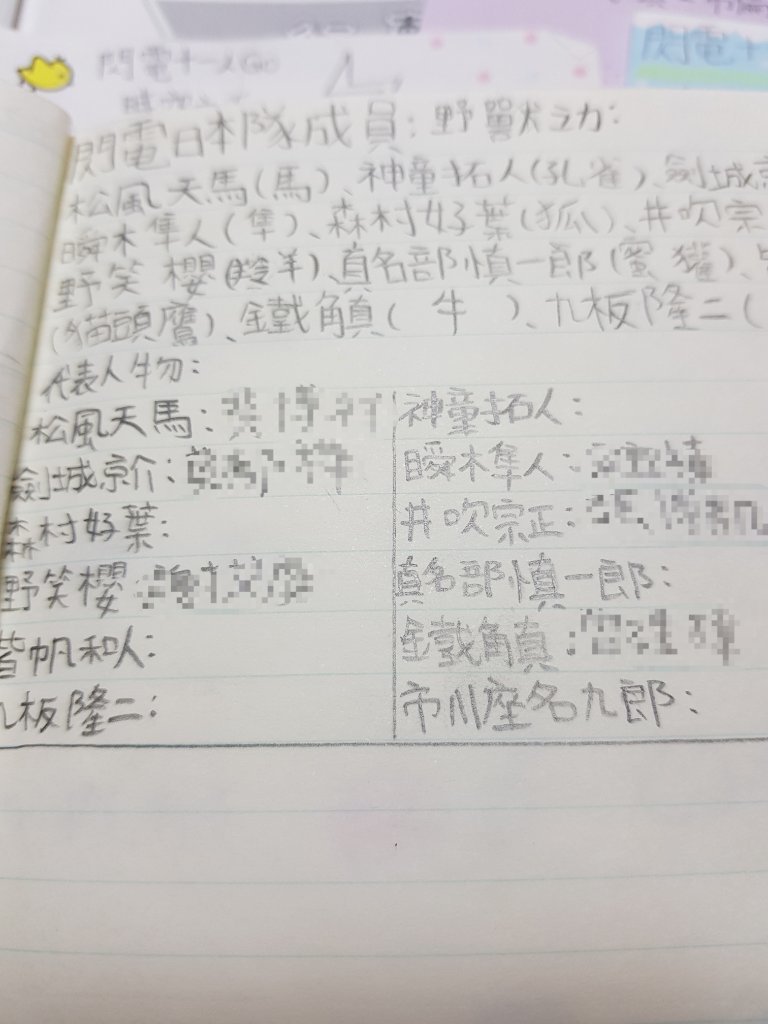 閃電十一人GO
閃電十
閃電日本隊成員：野獸之力：
松風天馬(馬)、神童拓人(孔雀)、劍城京
瞬木隼人(隼)、森村好葉(狐)、井吹宗
野笑櫻(羚羊)、真名部慎一郎(蜜獾)、
(猫頭鷹)、鐵角真(牛)、九板隆二(
代表人物：
松風天馬：
神童拓人：
劍城京介：
瞬木隼人：
森村好葉：
井吹宗正：
野笑櫻：
真名部慎一郎：
皆帆和人：
鐵角真：
九板隆二：
市川座名九郎：